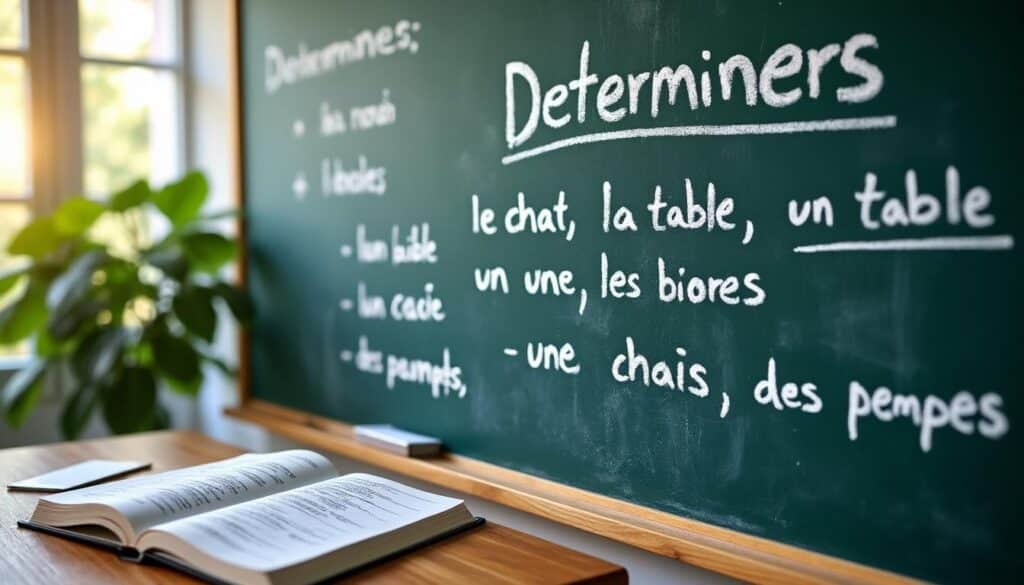 Determines;
Determiners
le chat, la table, un table
un une, les biores
- une chais, des pempes
- lun bible
- lun cacie
- des pampls,